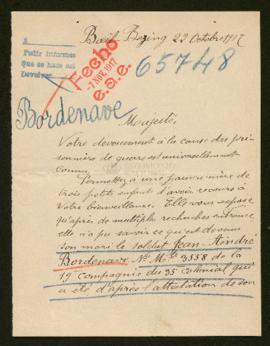 Boeil-Bezing 22 Octobre 1917
Pedir informes
Que se hace así
Devolver
Fecho
7 NOV. 1917
e.a.e.
65748
Bordenave
Majesté,
Votre dévouement à la cause des pri-
sonniers de guerre est universellement
connu.
Permettez à une pauvre mère de
trois petits enfants d'avoir recours à
Votre bienveillance. Elle vous expose
qu'après de multiples recherches en France,
elle n'a pu savoir ce qu'est devenu
son mari le soldat Jean-André
Bordenave No Mle 3558 de la
19e Compagnie du 35e colonial qui
a été d'après l'attestation de son